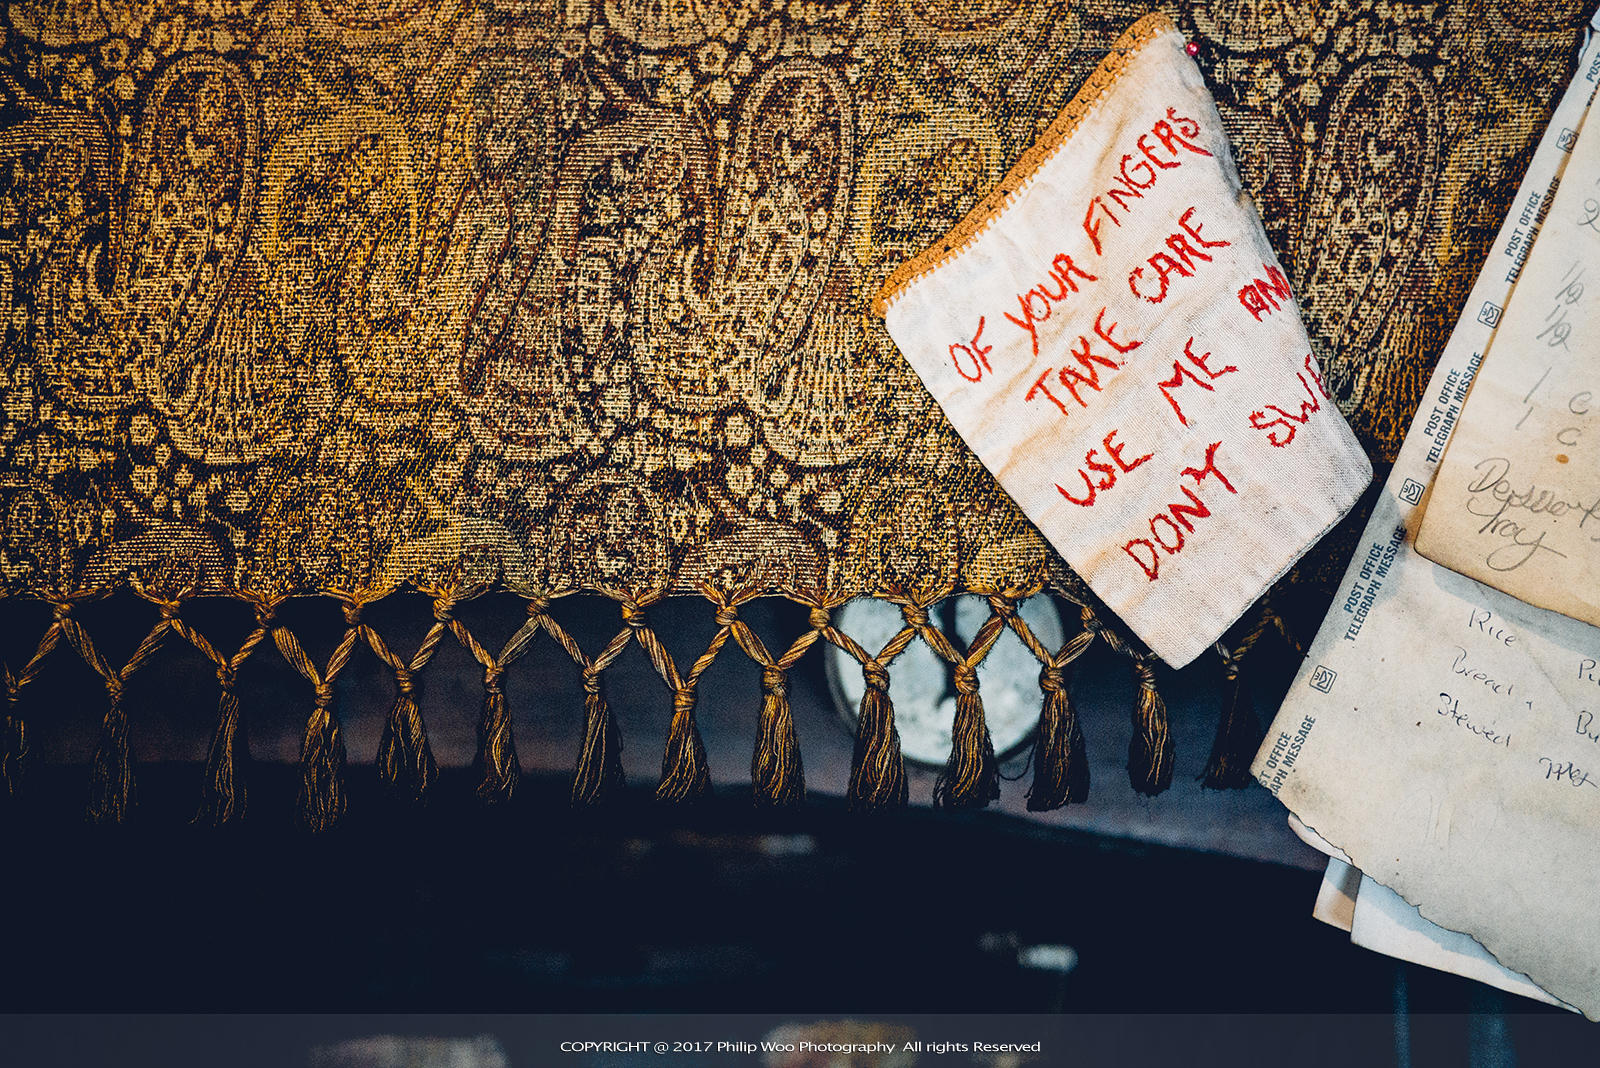 OF YOUR FINGERS
TAKE CARE
USE ME AN
DON'T SWE
POST OFFICE
TELEGRAPH MESSAGE
POST OFFICE
TELEGRAPH MESSAGE
POST OFFICE
TELEGRAPH MESSAGE
1/2
1/2
1 C
1 C
Tray
Rice
Bread
Stewed
COPYRIGHT @ 2017 Philip Woo Photography All rights Reserved